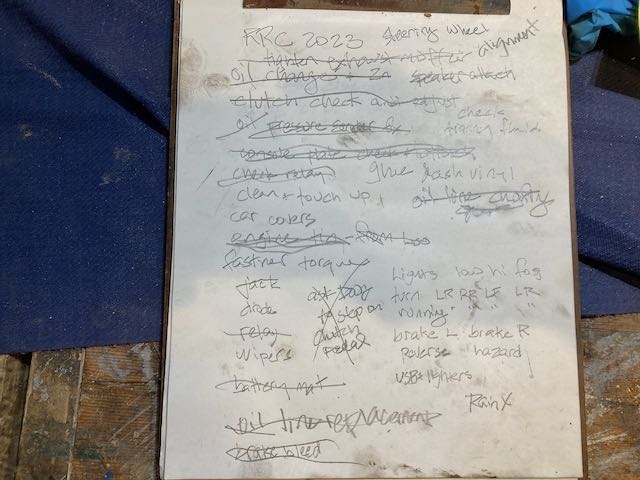 RRC 2023 steering wheel
alignment
tighten exhaust
oil change + Zn speaker attach
clutch check and adjust
check
oil pressure sender fix
tranny fluid
console plate
check relay glue dash vinyl
clean + touch up + oil line
car covers
engine
fastner torque
Lights low hi fog
jack
turn LR RR LF LR
diode to step on running " " "
clutch
relay brake L brake R
pedal
wipers Reverse hazard
USB + lighters
battery mat
RainX
oil line replacement
brake bleed